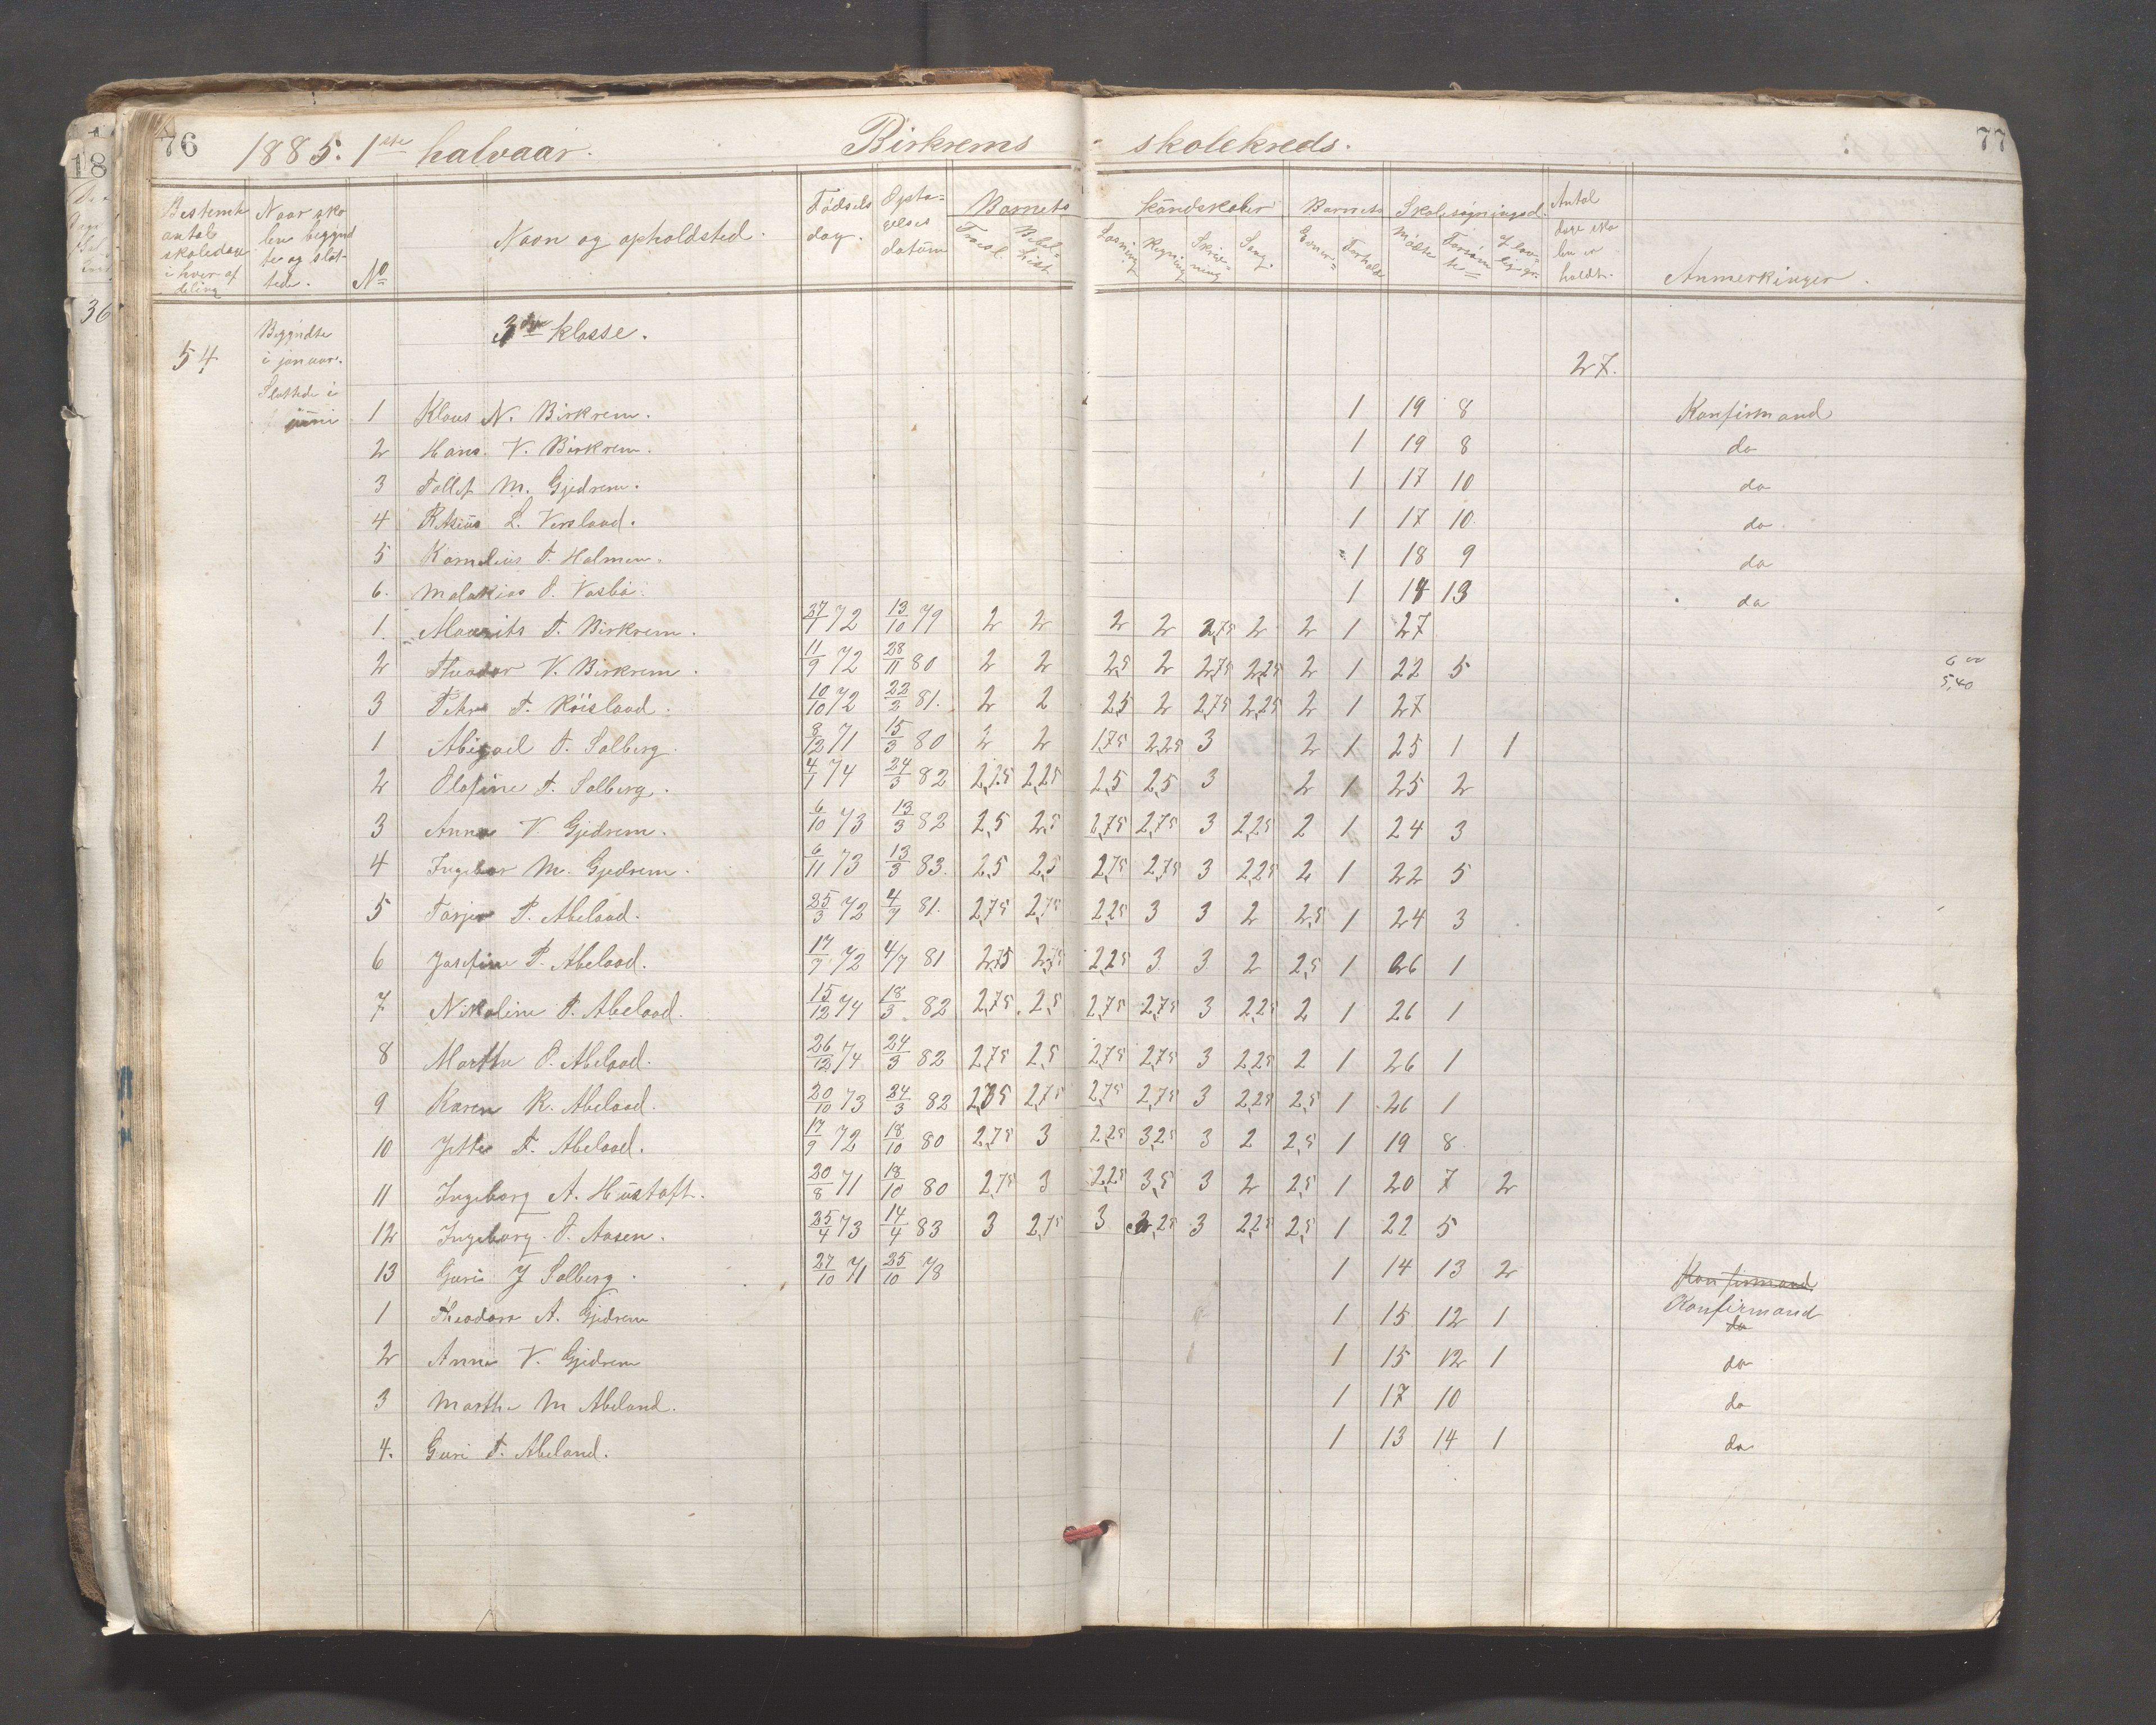 76 1885. 1ste halvaar. Birkrems skolekreds. 77
18
36
Bestemte antal skoledage i hver afdeling
Naar skolen begyndte og sluttede.
No
Navn og opholdsted.
Födsels dag.
Optagelses datum
Barnets kundskaber
Troesl.
Bibelhist.
Læsning
Regning
Skrivning
Sang.
Barnets
Evner
Forhold
Skolesøgningsd.
Mødte
Forsømte
Antal dage skolen er holdt.
Anmerkinger.
54 Begyndte i januar. Sluttede i juni 3die klasse. 27.
1 Klaus N. Birkrem. 1 19 8 Konfirmand
2 Hans V. Birkrem. 1 19 8 do
3 Tollef M. Gjedrem. 1 17 10 do
4 L. Versland. 1 17 10 do
5 Kornelius T. Holmen. 1 18 9 do
6. Malakias O. Vasbö. 1 14 13 do
1. Mauritz T. Birkrem. 27/1 72 13/10 79 2 2 2 2 2,75 2 2 1 27
2 Theodor V. Birkrem. 11/9 72 28/11 80 2 2 2,5 2 2,75 2,25 2 1 22 5 6 00
5,40
3 Petra T. Röisland. 10/10 72 22/2 81. 2 2 2,5 2 2,75 2,25 2 1 27
1 Abigael T. Solberg. 8/12 71 15/3 80 2 2 1,75 2,25 3 2 1 25 1 1
2 Olafine T. Solberg. 4/1 74 24/3 82 2,25 2,25 2,5 2,5 3 2 1 25 2
3 Anna V. Gjedrem. 6/10 73 13/3 82 2,5 2,5 2,75 2,75 3 2,25 2 1 24 3
4 Ingebor M. Gjedrem. 6/11 73 13/3 83. 2,5 2,5 2,75 2,75 3 2,25 2 1 22 5
5 Tarjer P. Abeland. 25/3 72 4/7 81. 2,75 2,75 2,25 3 3 2 2,5 1 24 3
6 Josefine P. Abeland. 17/7 72 4/7 81 2,75 2,75 2,25 3 3 2 2,5 1 26 1
7 Nikoline T. Abeland. 15/12 74 18/3 82 2,75 2,5 2,75 2,75 3 2,25 2 1 26 1
8 Marthe O. Abeland. 26/12 74 24/3 82 2,75 2,5 2,75 2,75 3 2,25 2 1 26 1
9 Karen R. Abeland. 20/10 73 24/3 82 2,75 2,75 2,75 2,75 3 2,25 2,5 1 26 1
10 Jette T. Abeland. 17/9 72 18/10 80 2,75 3 2,25 3,25 3 2 2,5 1 19 8
11 Ingeborg A. Hustoft. 20/8 71 18/10 80 2,75 3 2,25 3,5 3 2 2,5 1 20 7 2
12 Ingeborg O. Aasen. 25/4 73 14/4 83 3 2,75 3 3,25 3 2,25 2,5 1 22 5
13 Guri J Solberg. 27/10 71 25/10 78 1 14 13 2 Konfirmand
1 Theodora A. Gjedrem 1 15 12 1 Konfirmand
do
2 Anna V. Gjedrem 1 15 12 1 do
3 Martha M Abeland. 1 17 10 do
4. Guri T. Abeland. 1 13 14 1 do